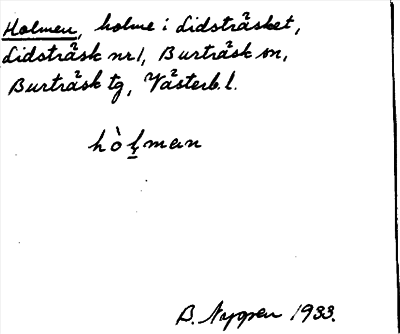 Holmen, holme i Lidsträsket,
Lidsträsk nr 1, Burträsk sn,
Burträsk tg, Västerb. l.
hòl̥man
B. Nyggren 1933.